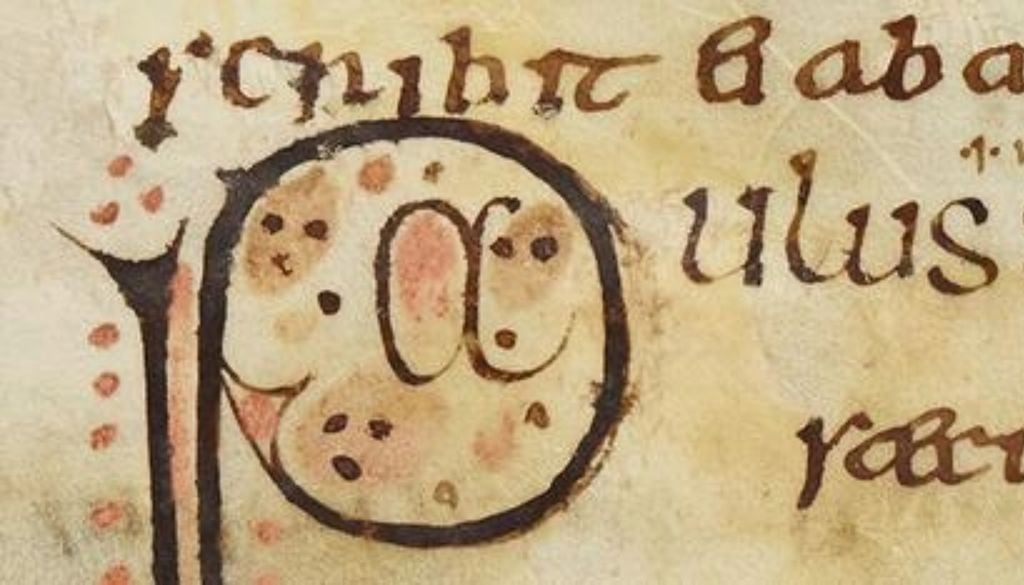 scribit & aba
Paulus